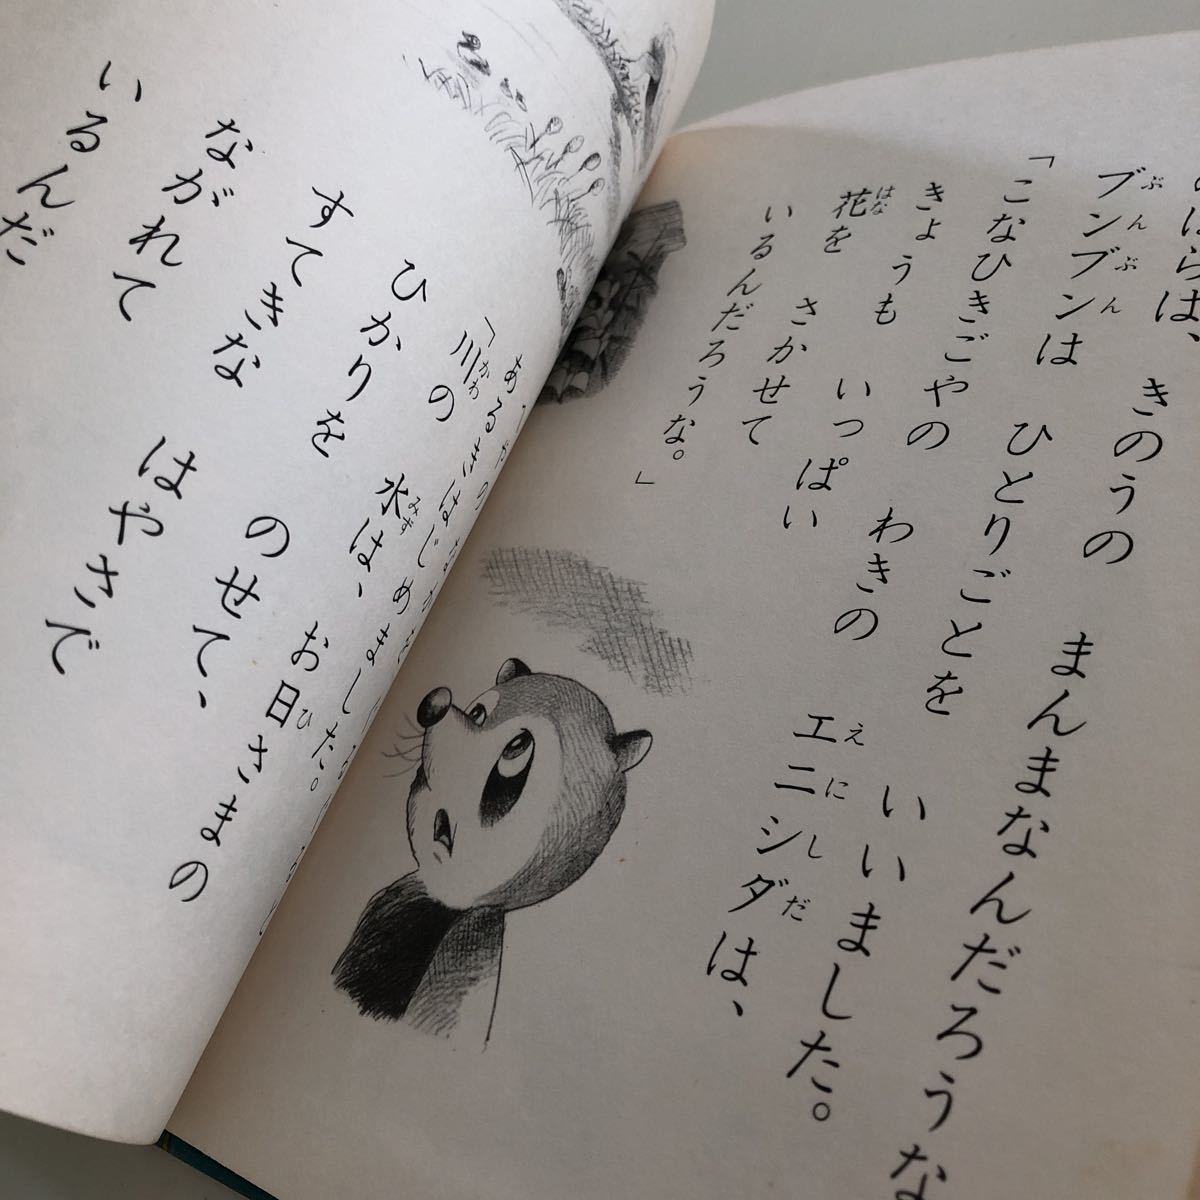 のはらは、 きのうの まんまなんだろうな
ブンブンは ひとりごとを いいました。
「こなひきごやの わきの エニシダは、
きょうも いっぱい
花を さかせて
いるんだろうな。」
あるきはじめました。
「川の 水は、 お日さまの
ひかりを のせて、
すてきな はやさで
ながれて
いるんだ